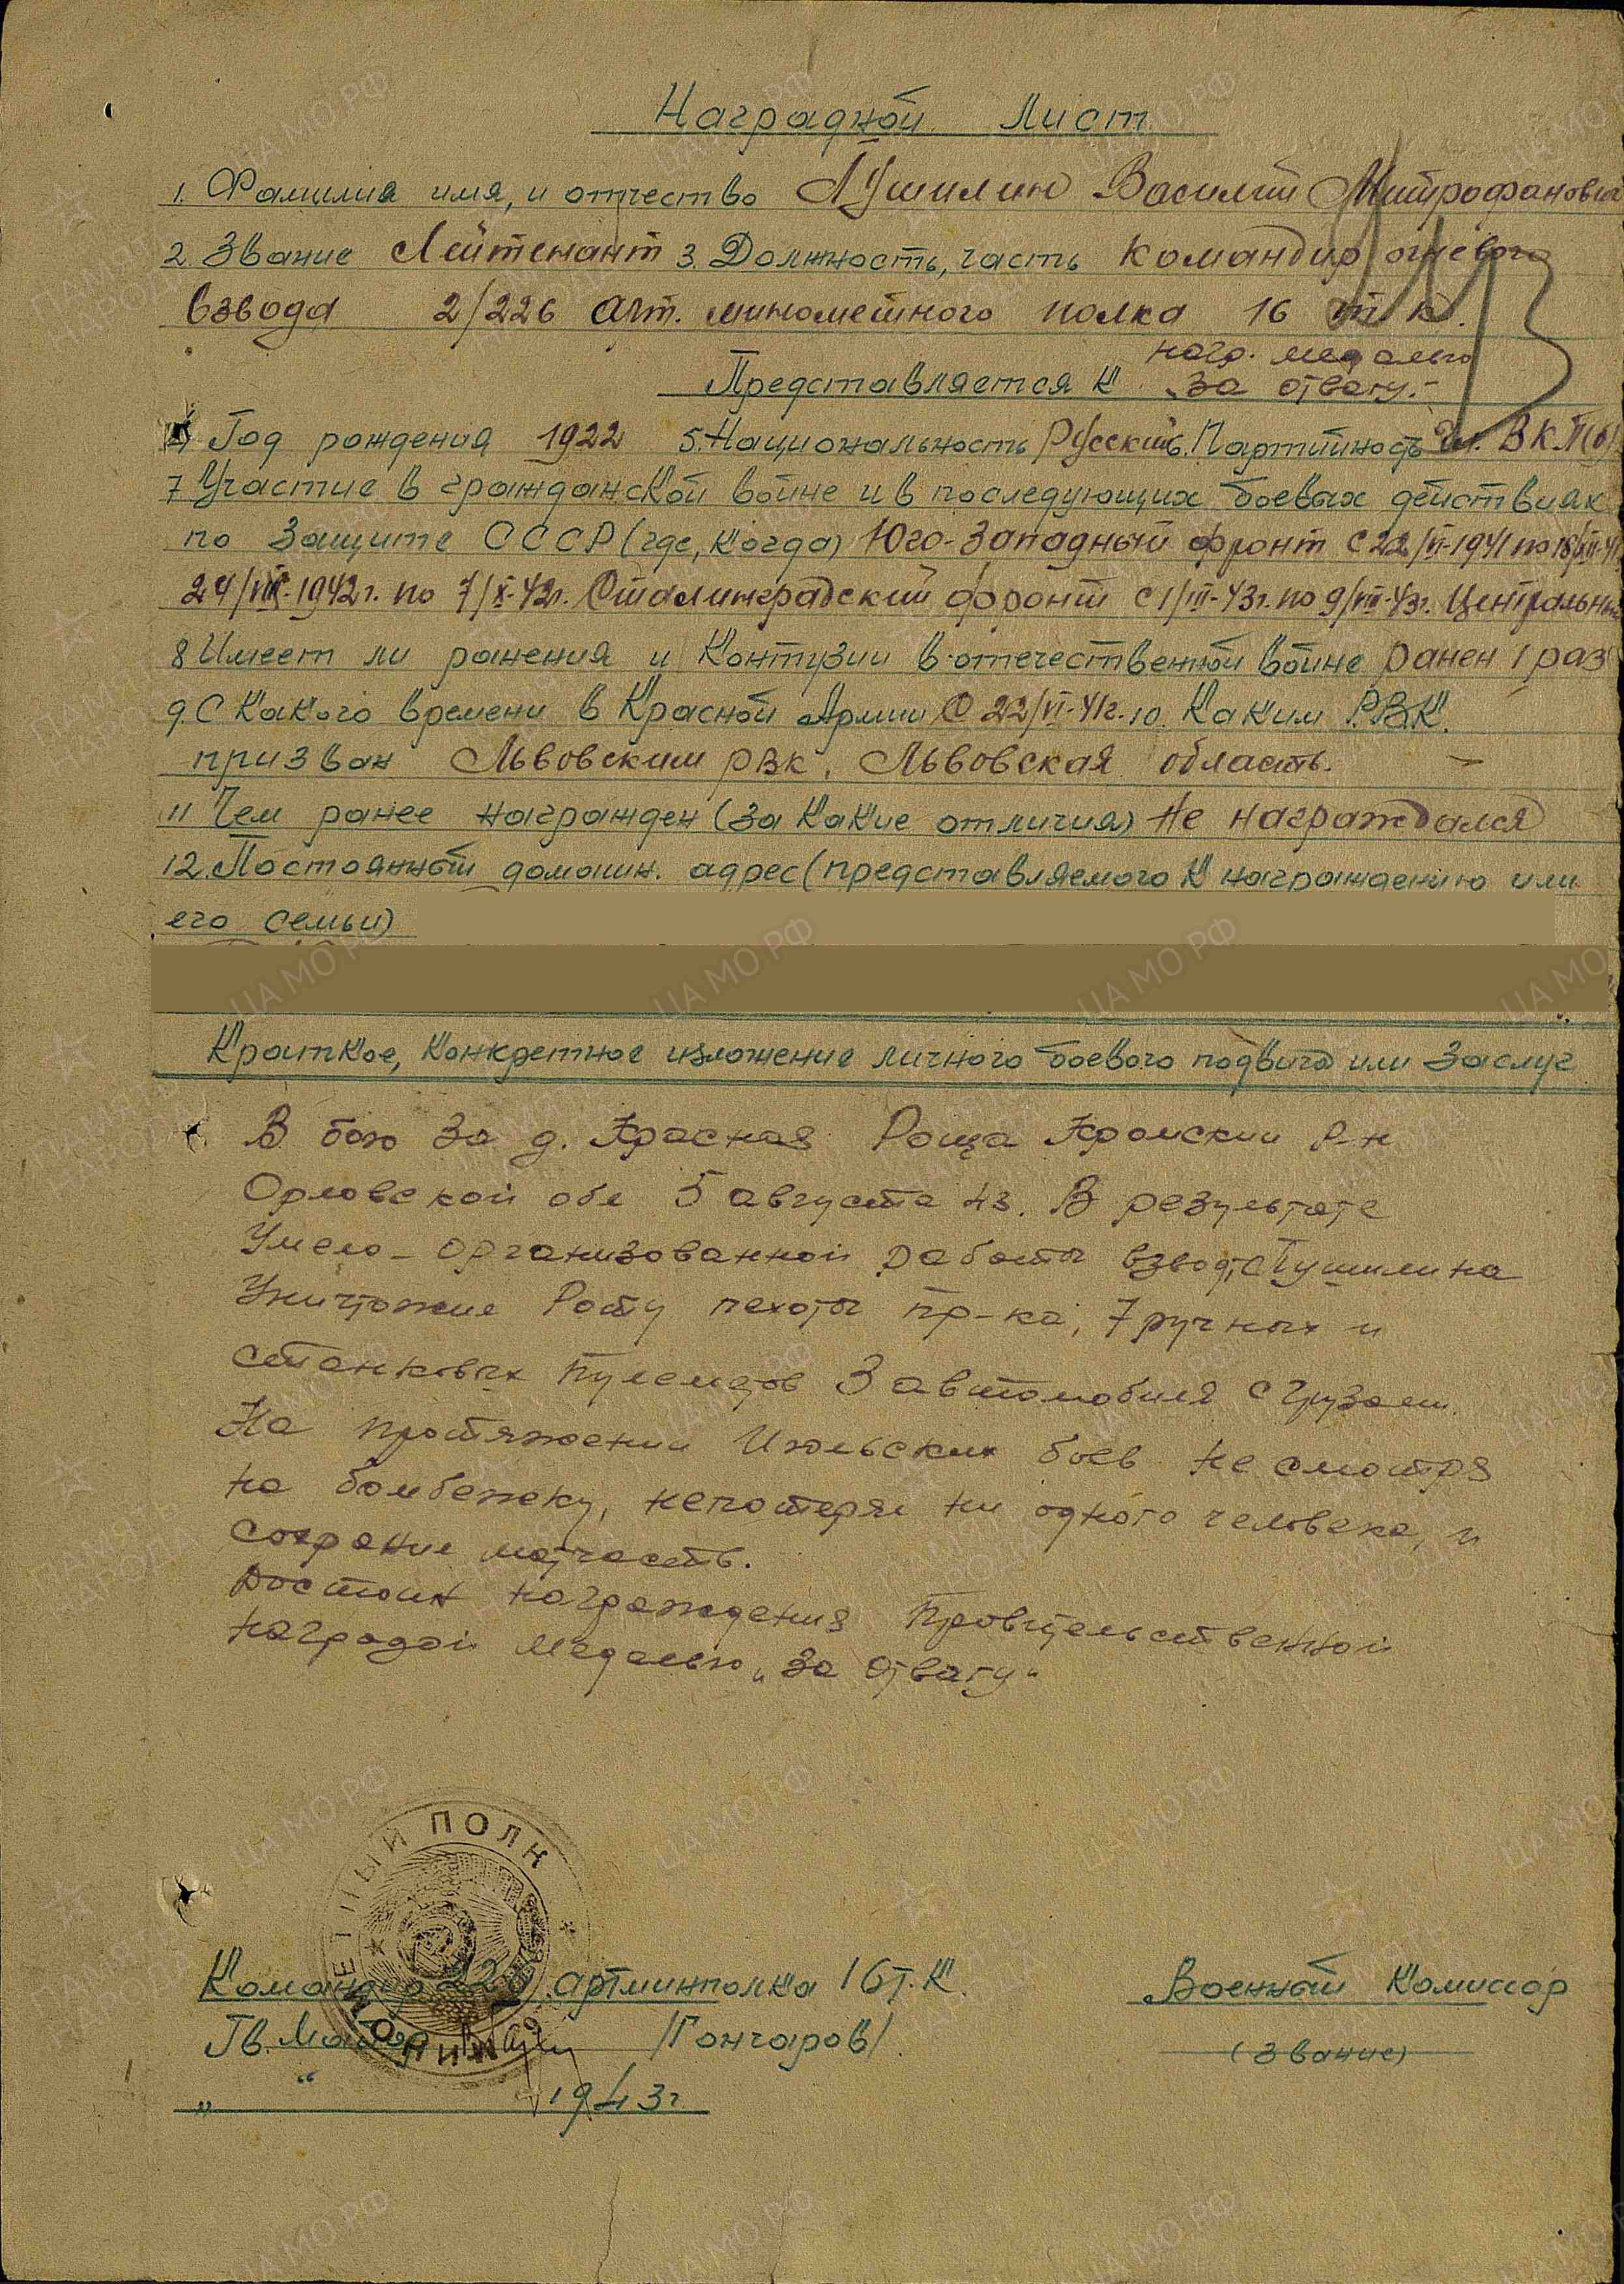 Наградной Лист
1. Фамилия имя, и отчество Пушилин Василий Митрофанович
2. Звание Лейтенант 3. Должность, часть командир огневого
взвода 2/226 арт. минометного полка 16 т к.
нагр. медалью
Представляется к „За отвагу.-
4) Год рождения 1922 5. Национальность Русский 6. Партийность чл. ВКП(б)
7 Участие в гражданской войне и в последующих боевых действиях
по защите СССР (где, когда) Юго-Западный фронт с 22/VI-1941 по 18/XII-41
24/VIII-1942г. по 7/X-42г. Сталинградский фронт с 1/III-43г. по 9/VIII-43г. Центральный
8 Имеет ли ранения и контузии в отечественной войне ранен 1 раз
9. С какого времени в Красной Армии С 22/VI-41г. 10. Каким Р.В.К.
призван Львовским рвк, Львовская область.
11 Чем ранее награжден (за какие отличия) Не награждался
12. Постоянный домашн. адрес (представляемого к награждению или
его семьи)
Краткое, конкретное изложение личного боевого подвига или заслуг
В бою за д. Красная Роща Кромский р-н
Орловской обл 5 августа 43. В результате
Умело-организованной работы взвод, Пушилина
Уничтожил Роту пехоты пр-ка, 7 ручных и
станковых пулеметов 3 автомобиля с грузом.
На протяжении Июльских боев не смотря
на бомбежку, непотерял ни одного человека, и
сохранил матчасть.
Достоин награждения Правительственной
наградой медалью „За отвагу"
МИНОМЕТНЫЙ ПОЛК
Командир 226 артминполка 16 т. К. Военный Комиссар
Гв. Майор /Гончаров/. (звание)
„ “ 1943г.
ЦА МО РФ
ПАМЯТЬ НАРОДА